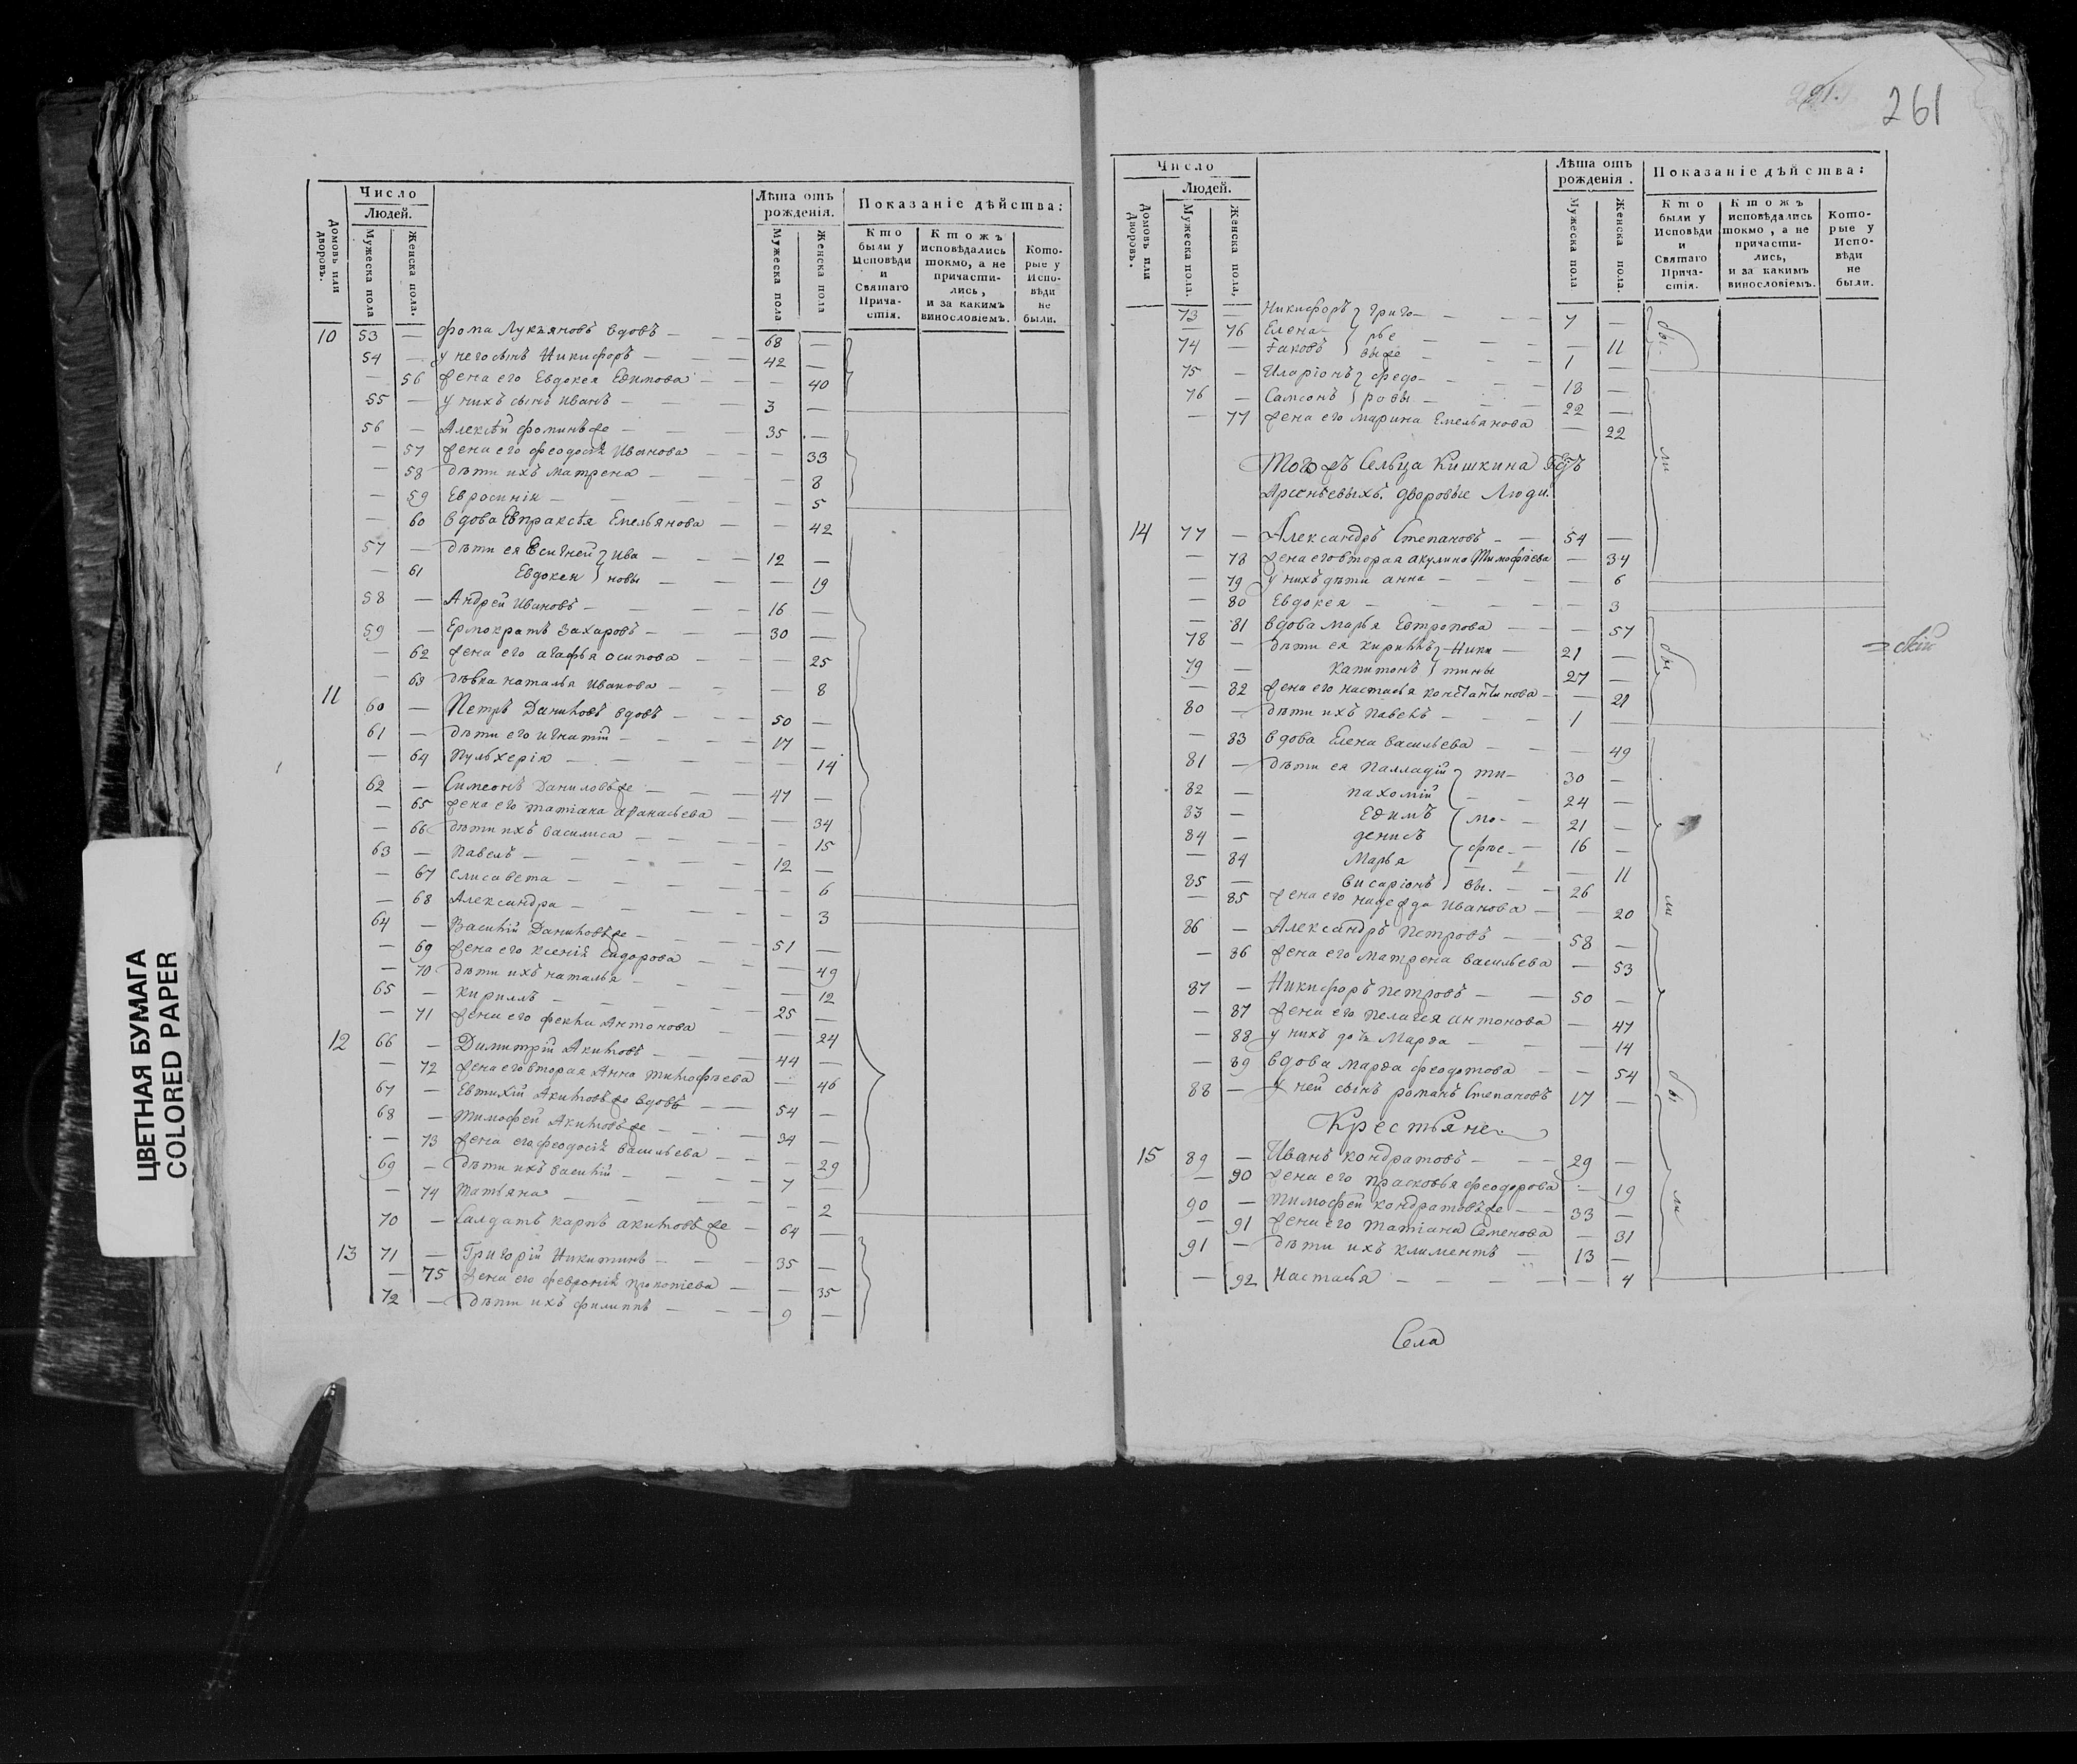 ЦВЕТНАЯ БУМАГА
COLORED PAPER
Число
Людей.
Домовъ или дворовъ.
Мужеска пола
Женска пола.
Лѣта отъ рожденія.
Мужеска пола
Женска пола
Показаніе дѣйства:
Кто были у Исповѣди и Святаго Причастія.
Ктожъ исповѣдались токмо, а не причастились, и за какимъ винословіемъ.
Которые у Исповѣди не были.
10 53 — Фома Лукьяновъ вдовъ — 68 —
54 — у него сынъ Никифоръ — 42 —
— 56 жена его Евдокея Ефимова — 40
55 — у нихъ сынъ Иванъ — 3 —
56 — Алексѣй Фоминъ же — 35 —
— 57 жена его Феодосія Иванова — 33
— 58 дѣти ихъ Матрена — 8
— 59 Евросинія — 5
— 60 вдова Евпраксѣя Емельянова — 42
57 — дѣти ея Евсигней } Ива — 12 —
— 61 Евдокея } новы — 19
58 — Андрей Ивановъ — 16 —
59 — Ермократъ Захаровъ — 30 —
— 62 жена его Агафья Осипова — 25
— 63 дѣвка Наталья Иванова — 8
11 60 — Петръ Даниловъ вдовъ — 50 —
61 — дѣти его Игнатій — 17 —
— 64 Пульхерія — 14
62 — Симеонъ Даниловъ же — 47 —
— 65 жена его Татіана Афанасьева — 34
— 66 дѣти ихъ Василиса — 15
63 — Павелъ — 12 —
— 67 Елисавета — 6
— 68 Александра — 3
64 — Василій Даниловъ же — 51 —
— 69 жена его Ксенія Сидорова — 49
— 70 дѣти ихъ Наталья — 12
65 — Кириллъ — 25 —
— 71 жена его Фекла Антонова — 24
12 66 — Димитрій Акиловъ — 44 —
— 72 жена его вторая Анна Тимофѣева — 46
67 — Евтихій Акиловъ же вдовъ — 54 —
68 — Тимофей Акиловъ же — 34 —
— 73 жена его Феодосія Васильева — 29
69 — дѣти ихъ Василій — 7 —
— 74 Татьяна — 2
70 — Салдатъ Карпъ Акиловъ же — 64 —
13 71 — Григорій Никитинъ — 35 —
— 75 жена его Февронія Прокопіева — 35
72 — дѣти ихъ Филиппъ — 9 —
261
Число
Людей.
Домовъ или дворовъ.
Мужеска пола.
Женска пола,
Лѣта отъ рожденія.
Мужеска пола
Женска пола.
Показаніе дѣйства:
Кто были у Исповѣди и Святаго Причастія.
Ктожъ исповѣдались токмо, а не причастились, и за какимъ винословіемъ.
Которые у Исповѣди не были.
73 — Никифоръ } Григо— 7 —
— 76 Елена } рье — 11
74 — Іаковъ } вы же — 1 —
75 — Иларіонъ } Федо— 18 —
76 — Самсонъ } ровы — 22 —
— 77 жена его Марина Емельянова — 22
Того жъ Сельца Кишкина
Арсеньевыхъ. дворовые Люди.
14 77 — Александръ Степановъ — 54 —
— 78 жена его вторая Акулина Тимофѣева — 34
— 79 у нихъ дѣти Анна — 6
— 80 Евдокея — 3
— 81 вдова Марья Евтропова — 57
78 — дѣти ея Кириллъ } Ники— 21 —
79 — Капитонъ } тины 27 —
— 82 жена его Настасья Константинова — 21
80 — дѣти ихъ Павелъ — 1 —
— 83 вдова Елена Васильева — 49
81 — дѣти ея Палладій } ти— 30 —
82 — Пахомій — 24 —
83 — Ефимъ } мо— 21 —
84 — Денисъ 16 —
— 84 Марья } фѣе— 11
85 — Висаріонъ } вы. — 26 —
— 85 жена его Надежда Иванова — 20
86 — Александръ Петровъ — 58 —
— 86 жена его Матрена Васильева — 53
87 — Никифоръ Петровъ — 50 —
— 87 жена его Пелагея Антонова — 47
— 88 у нихъ дочь Марѳа — 14
— 89 вдова Марѳа Федотова — 54
88 — у ней сынъ Романъ Степановъ 17 —
Крестьяне.
15 89 — Иванъ Кондратовъ — 29 —
— 90 жена его Прасковья Феодорова — 19
90 — Тимофей Кондратовъ же — 33 —
— 91 жена его Татіана Семенова — 31
91 — дѣти ихъ Климентъ — 13 —
— 92 Настасья — 4
бы
ли
бы
ли
бы
ли
ской
Села